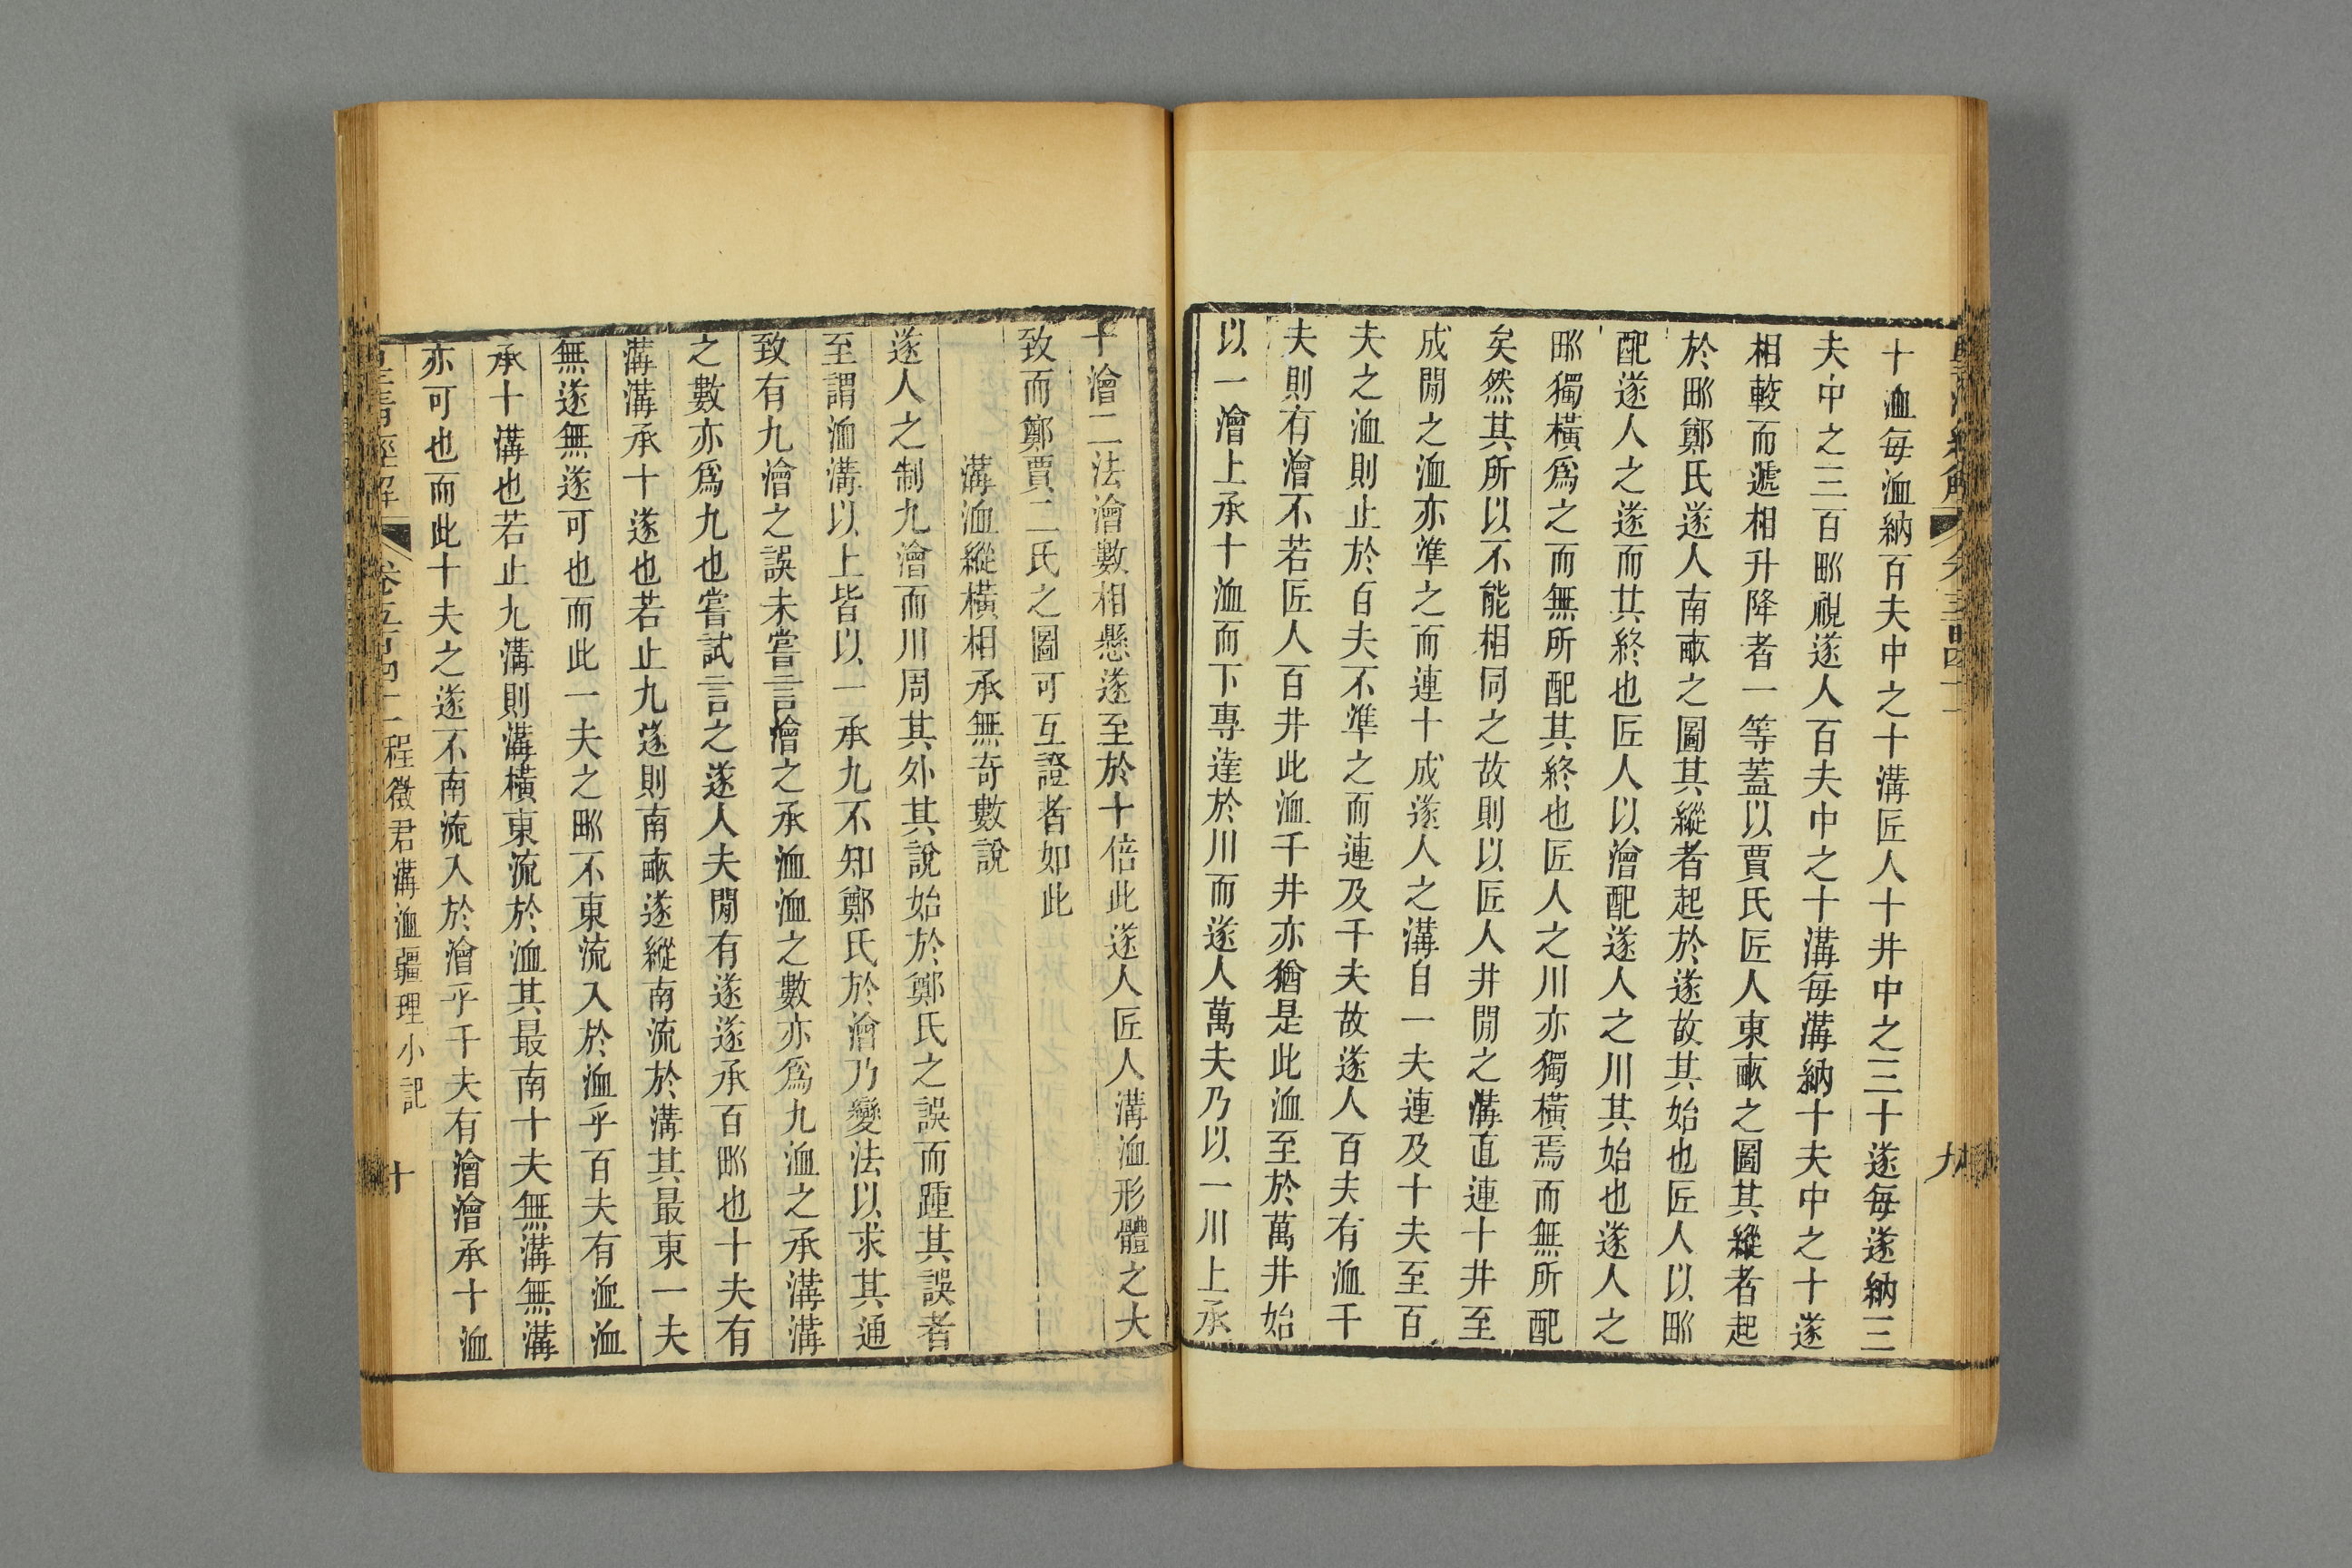 十洫每洫納百夫中之十溝匠人十井中之三十遂每遂納三
夫中之三百𤰕視遂人百夫中之十溝每溝納十夫中之十遂
相較而遞相升降者一等蓋以賈氏匠人東畞之圖其縱者起
於𤰕鄭氏遂人南畞之圖其縱者起於遂故其始也匠人以𤰕
配遂人之遂而其終也匠人以澮配遂人之川其始也遂人之
𤰕獨橫爲之而無所配其終也匠人之川亦獨橫焉而無所配
矣然其所以不能相同之故則以匠人井閒之溝直連十井至
成閒之洫亦準之而連十成遂人之溝自一夫連及十夫至百
夫之洫則止於百夫不準之而連及千夫故遂人百夫有洫千
夫則有澮不若匠人百井此洫千井亦猶是此洫至於萬井始
以一澮上承十洫而下專達於川而遂人萬夫乃以一川上承
十澮二法澮數相懸遂至於十倍此遂人匠人溝洫形體之大
致而鄭賈二氏之圖可互證者如此
溝洫縱橫相承無奇數說
遂人之制九澮而川周其外其說始於鄭氏之誤而踵其誤者
至謂洫溝以上皆以一承九不知鄭氏於澮乃變法以求其通
致有九澮之誤未嘗言澮之承洫洫之數亦爲九洫之承溝溝
之數亦爲九也嘗試言之遂人夫閒有遂遂承百𤰕也十夫有
溝溝承十遂也若止九遂則南畞遂縱南流於溝其最東一夫
無遂無遂可也而此一夫之𤰕不東流入於洫乎百夫有洫洫
承十溝也若止九溝則溝橫東流於洫其最南十夫無溝無溝
亦可也而此十夫之遂不南流入於澮乎千夫有澮澮承十洫
皇淸經解 卷五百四十二 程徵君溝洫疆理小記 十